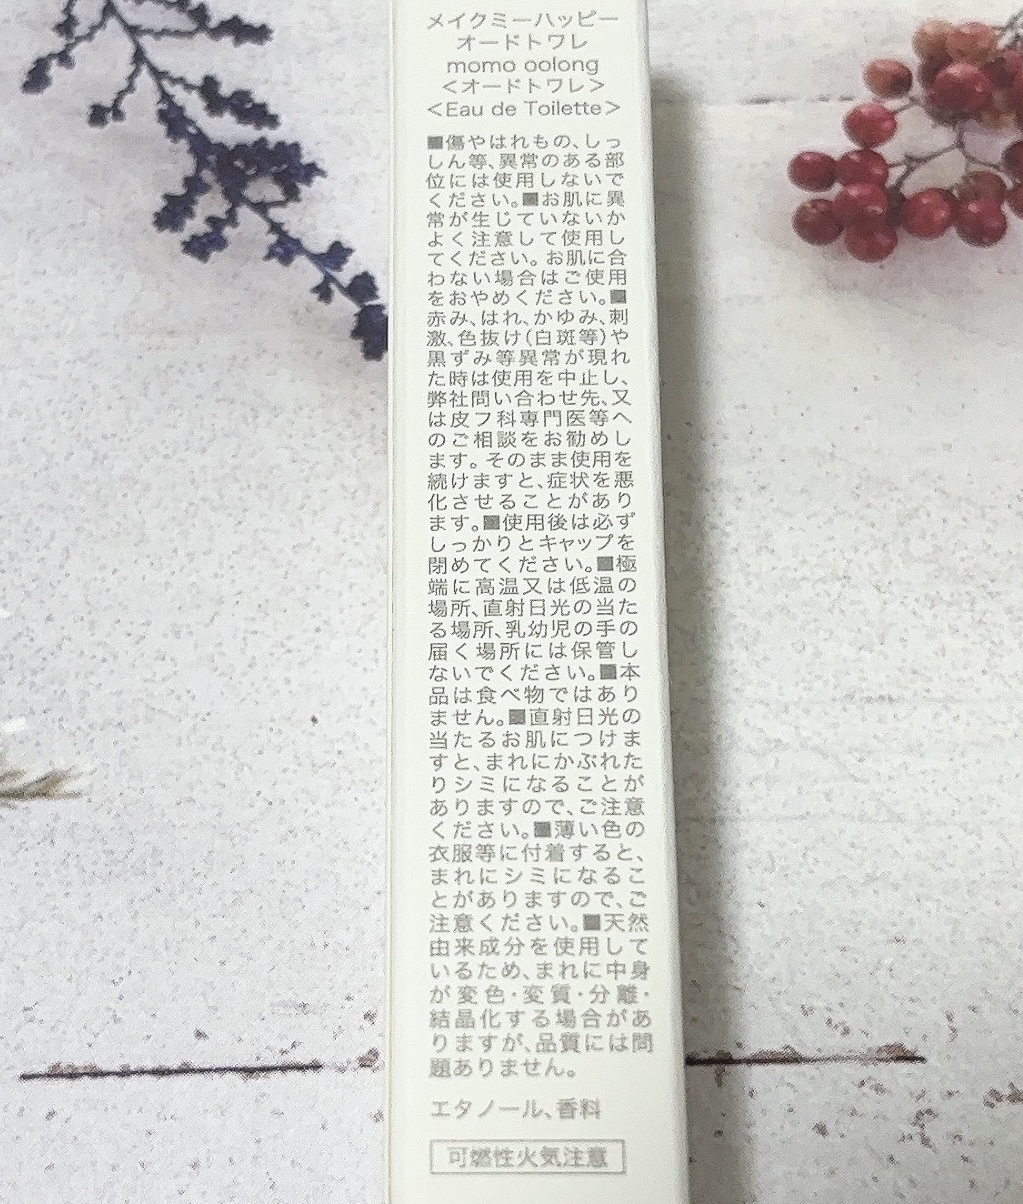 メイクミーハッピー
オードトワレ
momo oolong
＜オードトワレ＞
＜Eau de Toilette＞
■傷やはれもの、しっ
しん等、異常のある部
位には使用しないで
ください。■お肌に異
常が生じていないか
よく注意して使用し
てください。お肌に合
わない場合はご使用
をおやめください。■
赤み、はれ、かゆみ、刺
激、色抜け(白斑等)や
黒ずみ等異常が現れ
た時は使用を中止し、
弊社問い合わせ先、又
は皮フ科専門医等へ
のご相談をお勧めし
ます。そのまま使用を
続けますと、症状を悪
化させることがあり
ます。■使用後は必ず
しっかりとキャップを
閉めてください。■極
端に高温又は低温の
場所、直射日光の当た
る場所、乳幼児の手の
届く場所には保管し
ないでください。■本
品は食べ物ではあり
ません。■直射日光の
当たるお肌につけま
すと、まれにかぶれた
りシミになることが
ありますので、ご注意
ください。■薄い色の
衣服等に付着すると、
まれにシミになるこ
とがありますので、ご
注意ください。■天然
由来成分を使用して
いるため、まれに中身
が変色・変質・分離・
結晶化する場合があ
りますが、品質には問
題ありません。
エタノール、香料
可燃性火気注意